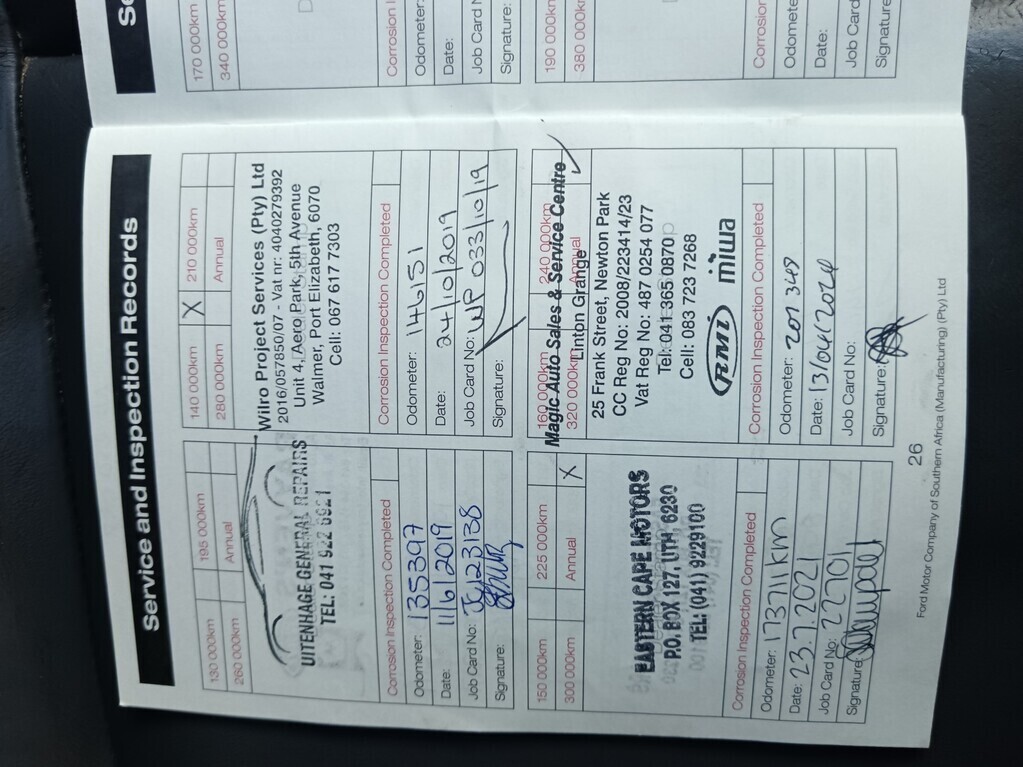 Service and Inspection Records
130 000km
195 000km
260 000km
Annual
UITENHAGE GENERAL REPAIRS
TEL: 041 922 6921
Corrosion Inspection Completed
Odometer: 135397
Date: 11/6/2019
Job Card No: JC23138
Signature:
140 000km
X
210 000km
280 000km
Annual
Wilro Project Services (Pty) Ltd
2016/057850/07 - Vat nr: 4040279392
Unit 4, Aero Park, 5th Avenue
Walmer, Port Elizabeth, 6070
Cell: 067 617 7303
Corrosion Inspection Completed
Odometer: 146151
Date: 24/10/2019
Job Card No: WP 033/10/19
Signature:
150 000km
225 000km
300 000km
Annual
X
EASTERN CAPE MOTORS
P.O. BOX 127, UTH, 6230
TEL: (041) 9229100
Corrosion Inspection Completed
Odometer: 173711km
Date: 23.7.2021
Job Card No: 22701
Signature:
160 000km
240 000km
Magic Auto Sales & Service Centre
320 000km
Annual
Linton Grange
25 Frank Street, Newton Park
CC Reg No: 2008/223414/23
Vat Reg No: 487 0254 077
Tel: 041 365 0870
Cell: 083 723 7268
RMI
miwa
Corrosion Inspection Completed
Odometer: 201349
Date: 13/04/2024
Job Card No:
Signature:
26
Ford Motor Company of Southern Africa (Manufacturing) (Pty) Ltd
170 000km
340 000km
Corrosion
Odometer:
Date:
Job Card
Signature:
190 000k
380 000k
Corrosion
Odometer
Date:
Job Card
Signature